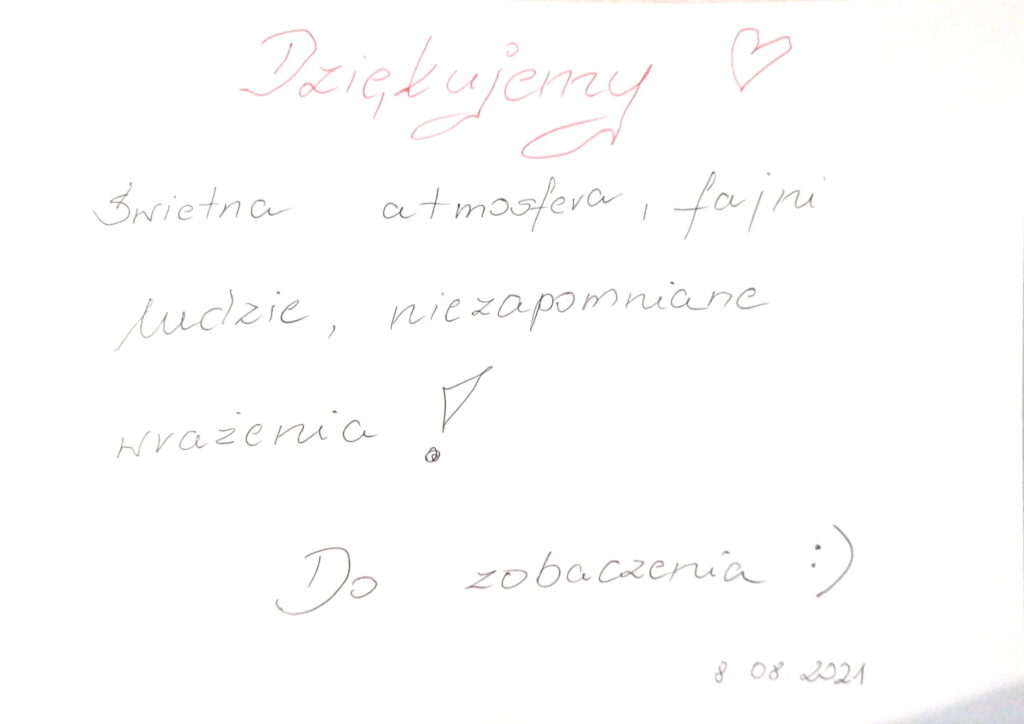 Dziękujemy ♡
Świetna atmosfera, fajni
ludzie, niezapomniane
wrażenia!
Do zobaczenia :)
8 08.2021